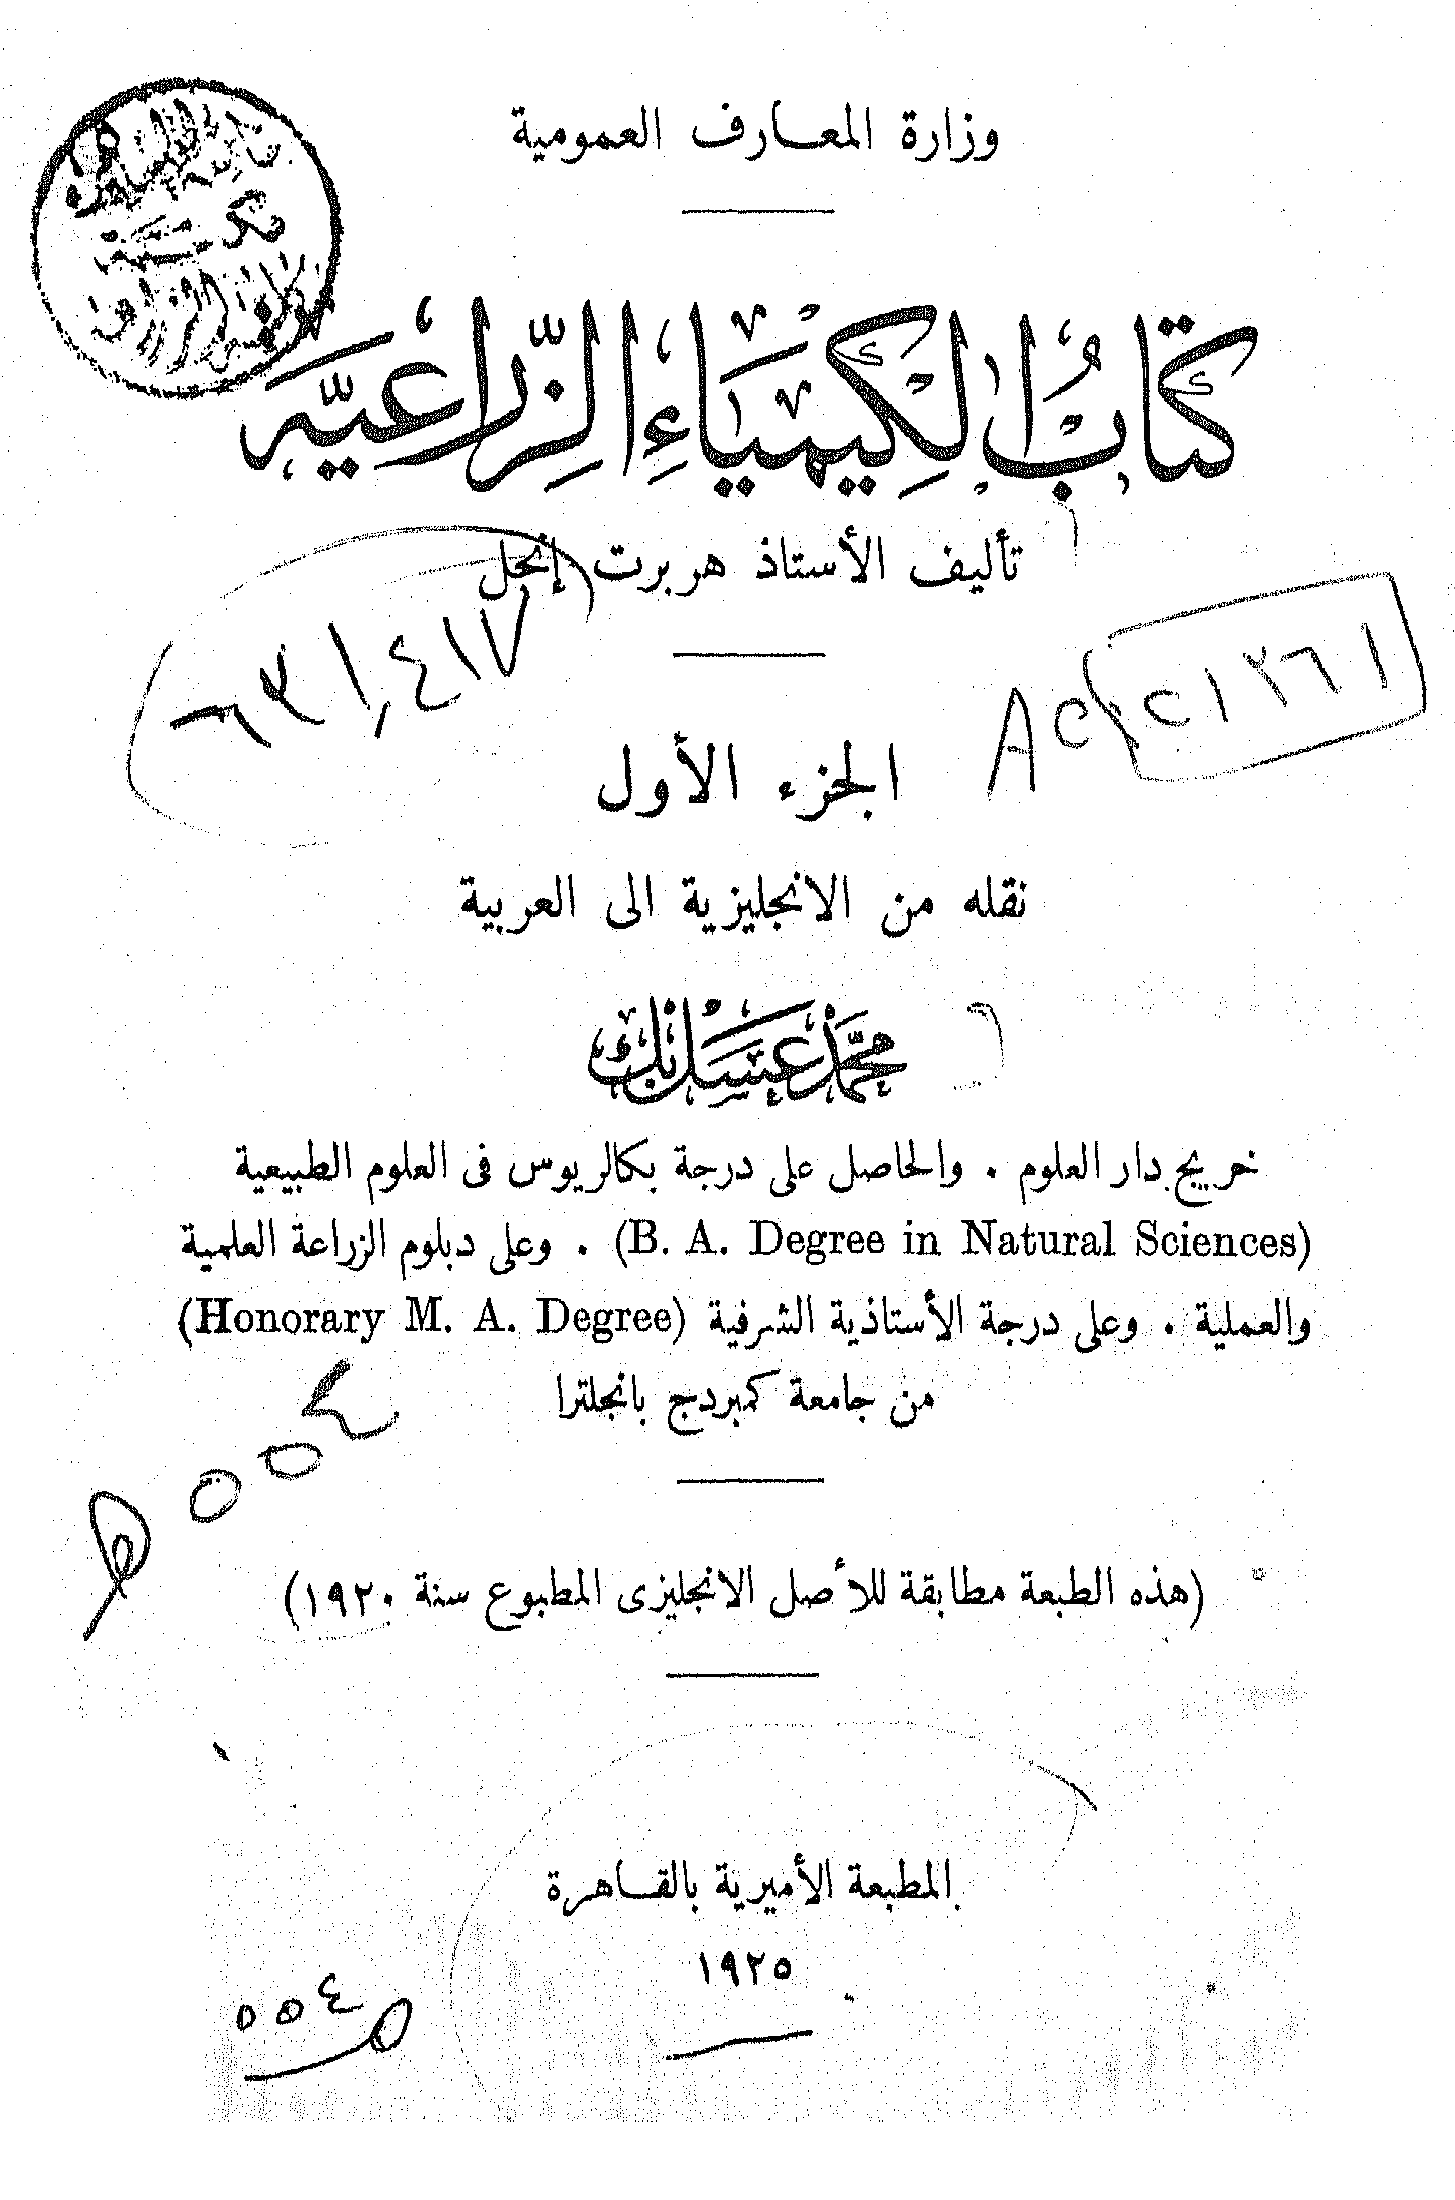 وزارة المعارف العمومية
كتاب الكيمياء الزراعية
تأليف الأستاذ هربرت إنجل
٦٣١,٤١٧
الجزء الأول
نقله من الانجليزية الى العربية
محمد عسل بك
خريج دار العلوم . والحاصل على درجة بكالريوس فى العلوم الطبيعية
(B. A. Degree in Natural Sciences) . وعلى دبلوم الزراعة العلمية
والعملية . وعلى درجة الأستاذية الشرفية (Honorary M. A. Degree)
من جامعة كمبردج بانجلترا
(هذه الطبعة مطابقة للأصل الانجليزى المطبوع سنة ١٩٢٠)
المطبعة الأميرية بالقاهرة
١٩٢٥
٥٥٤